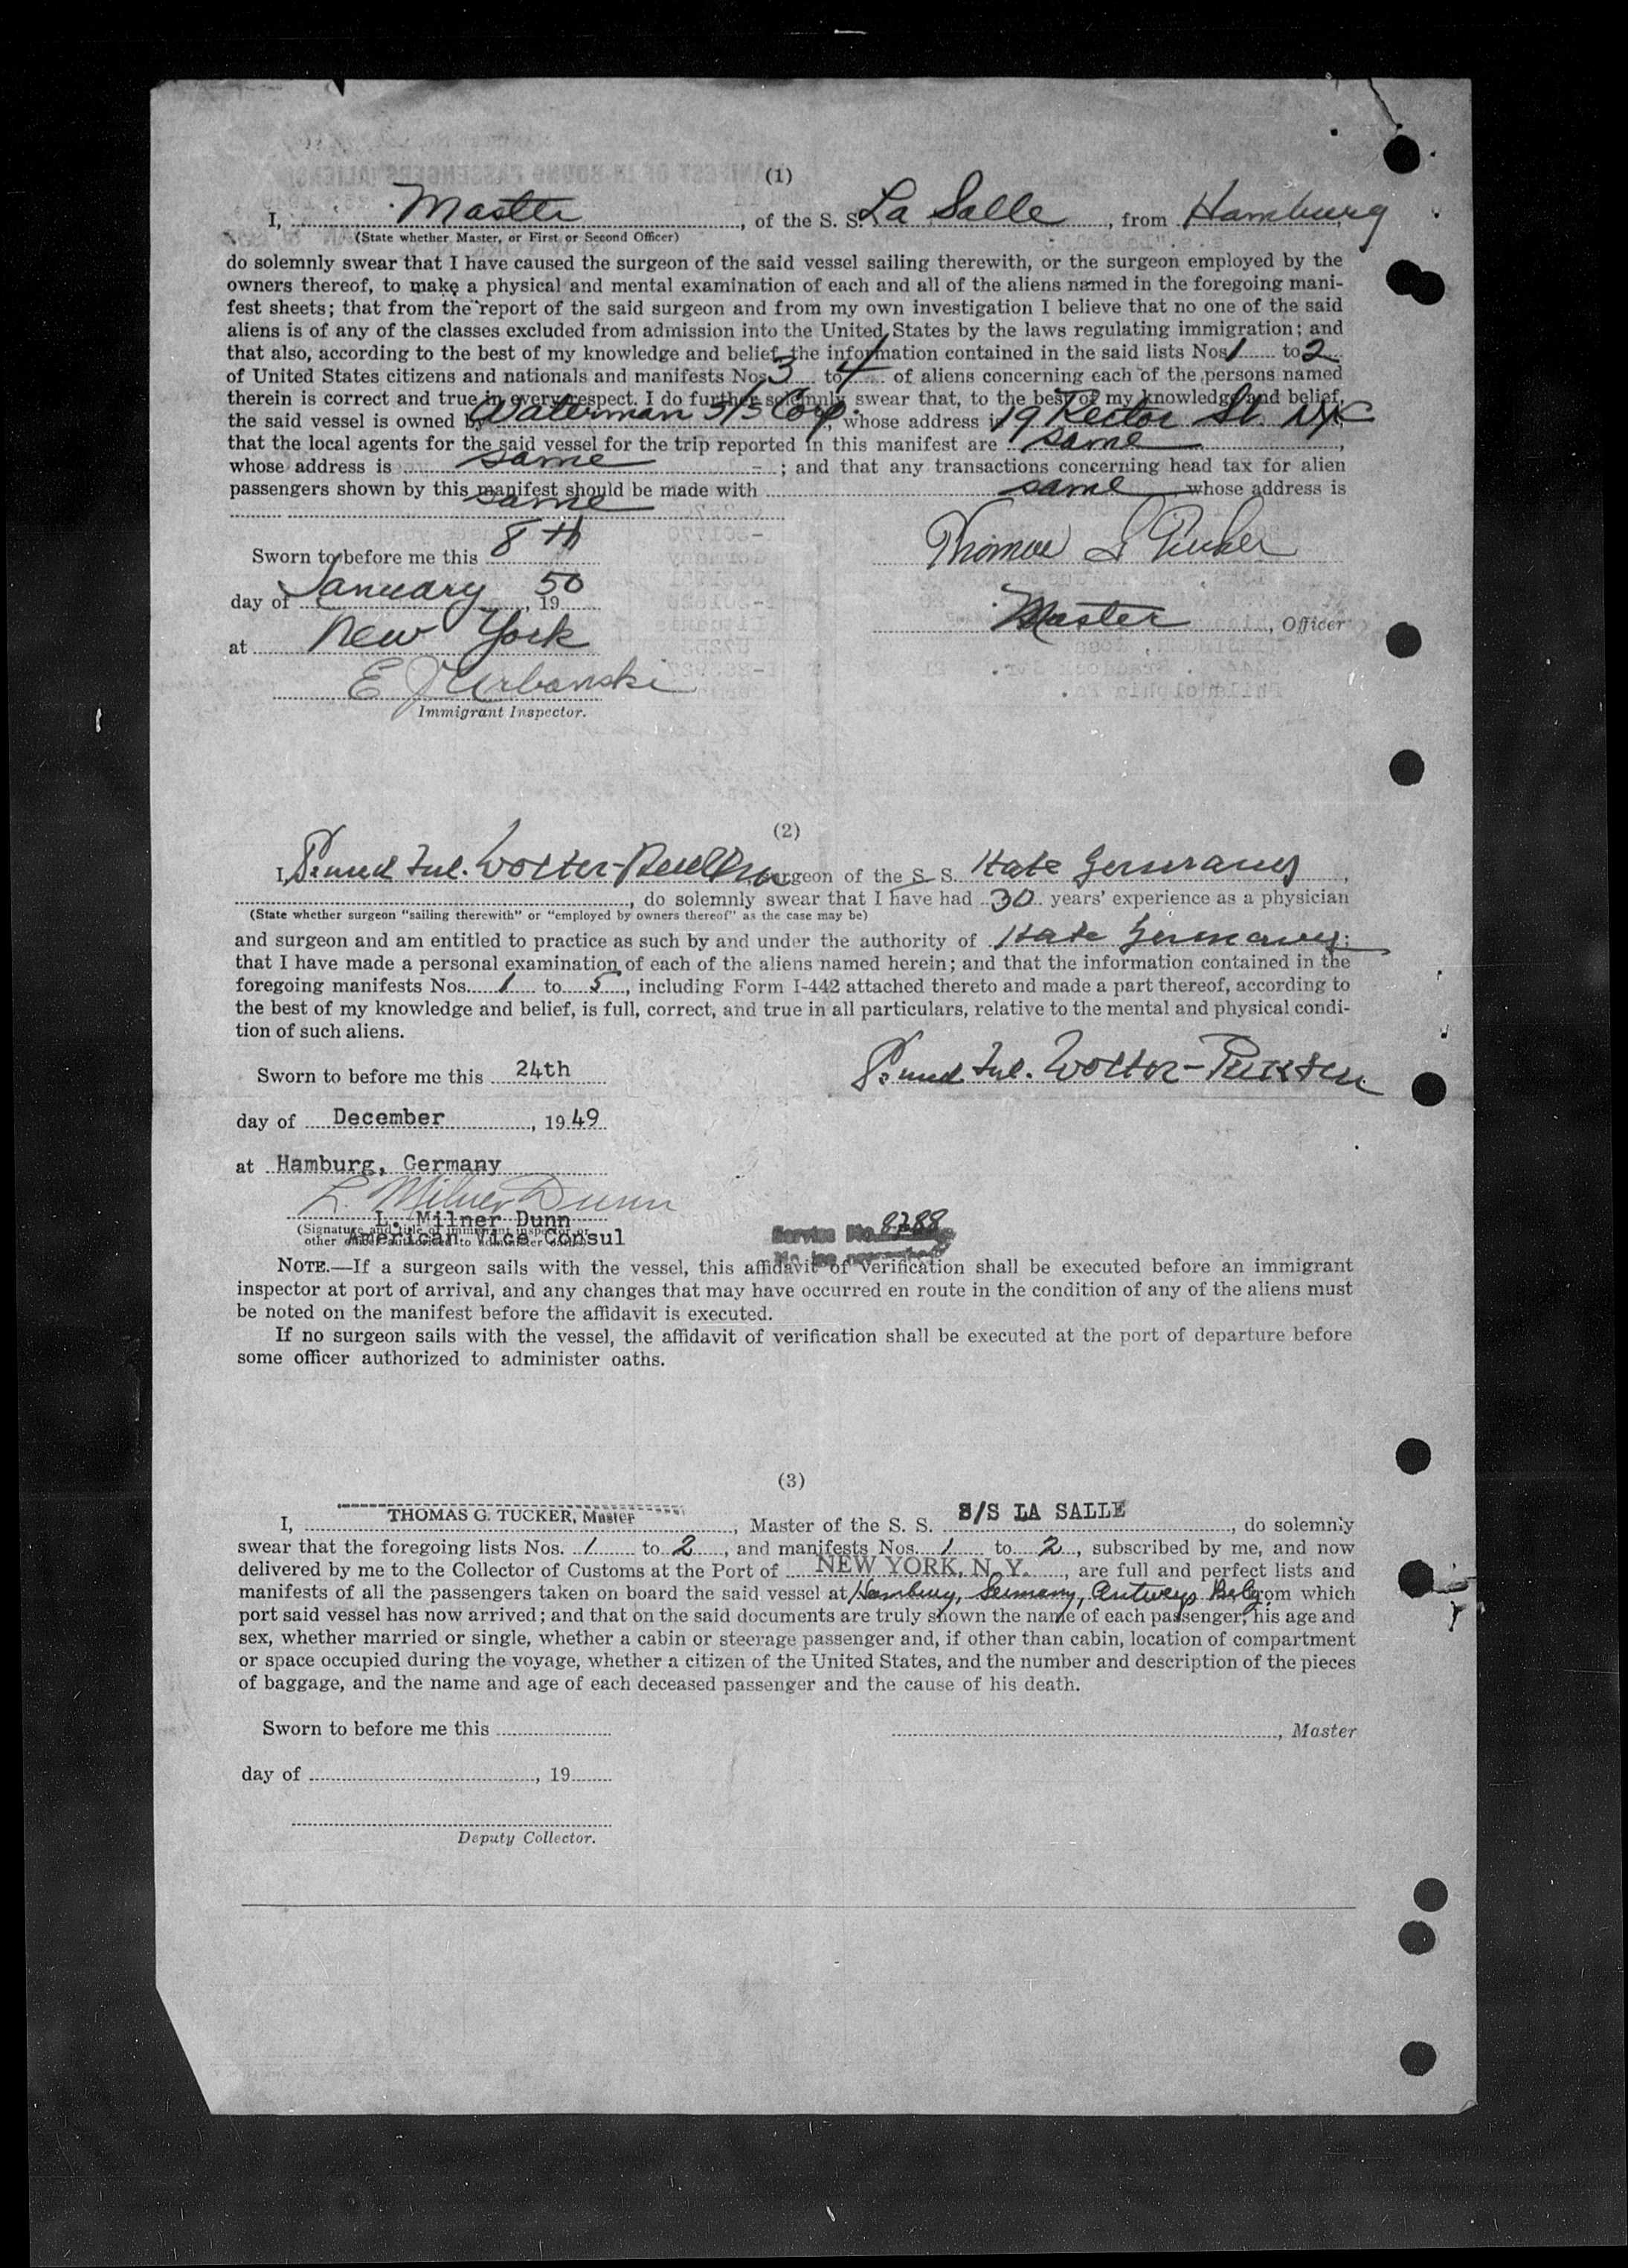 (1)
I, Master, of the S. S. La Salle, from Hamburg,
(State whether Master, or First or Second Officer)
do solemnly swear that I have caused the surgeon of the said vessel sailing therewith, or the surgeon employed by the
owners thereof, to make a physical and mental examination of each and all of the aliens named in the foregoing mani-
fest sheets; that from the report of the said surgeon and from my own investigation I believe that no one of the said
aliens is of any of the classes excluded from admission into the United States by the laws regulating immigration; and
that also, according to the best of my knowledge and belief, the information contained in the said lists Nos. 1 to 2
of United States citizens and nationals and manifests Nos. 3 to 4 of aliens concerning each of the persons named
therein is correct and true in every respect. I do further solemnly swear that, to the best of my knowledge and belief,
the said vessel is owned by Waterman S/S Corp., whose address is 19 Rector St. NYC
that the local agents for the said vessel for the trip reported in this manifest are same,
whose address is same; and that any transactions concerning head tax for alien
passengers shown by this manifest should be made with same whose address is
same
Sworn to before me this 8th
Thomas G Tucker
day of January, 1950
Master, Officer
at New York
E J Urbanski
Immigrant Inspector.
(2)
I, Wolter- surgeon of the S. S. State Germany,
, do solemnly swear that I have had 30 years' experience as a physician
(State whether surgeon "sailing therewith" or "employed by owners thereof" as the case may be)
and surgeon and am entitled to practice as such by and under the authority of State Germany;
that I have made a personal examination of each of the aliens named herein; and that the information contained in the
foregoing manifests Nos. 1 to 5, including Form I-442 attached thereto and made a part thereof, according to
the best of my knowledge and belief, is full, correct, and true in all particulars, relative to the mental and physical condi-
tion of such aliens.
Sworn to before me this 24th
Wolter-
day of December, 1949
at Hamburg, Germany
L. Milner Dunn
L. Milner Dunn
(Signature and title of immigrant inspector or
other officer authorized to administer oaths)
American Vice Consul
Service No. 8788
NOTE.—If a surgeon sails with the vessel, this affidavit of verification shall be executed before an immigrant
inspector at port of arrival, and any changes that may have occurred en route in the condition of any of the aliens must
be noted on the manifest before the affidavit is executed.
If no surgeon sails with the vessel, the affidavit of verification shall be executed at the port of departure before
some officer authorized to administer oaths.
(3)
I, THOMAS G. TUCKER, Master, Master of the S. S. S/S LA SALLE, do solemnly
swear that the foregoing lists Nos. 1 to 2, and manifests Nos. 1 to 2, subscribed by me, and now
delivered by me to the Collector of Customs at the Port of NEW YORK, N. Y., are full and perfect lists and
manifests of all the passengers taken on board the said vessel at Hamburg, Germany, Antwerp Belg. from which
port said vessel has now arrived; and that on the said documents are truly shown the name of each passenger, his age and
sex, whether married or single, whether a cabin or steerage passenger and, if other than cabin, location of compartment
or space occupied during the voyage, whether a citizen of the United States, and the number and description of the pieces
of baggage, and the name and age of each deceased passenger and the cause of his death.
Sworn to before me this
, Master
day of , 19
Deputy Collector.